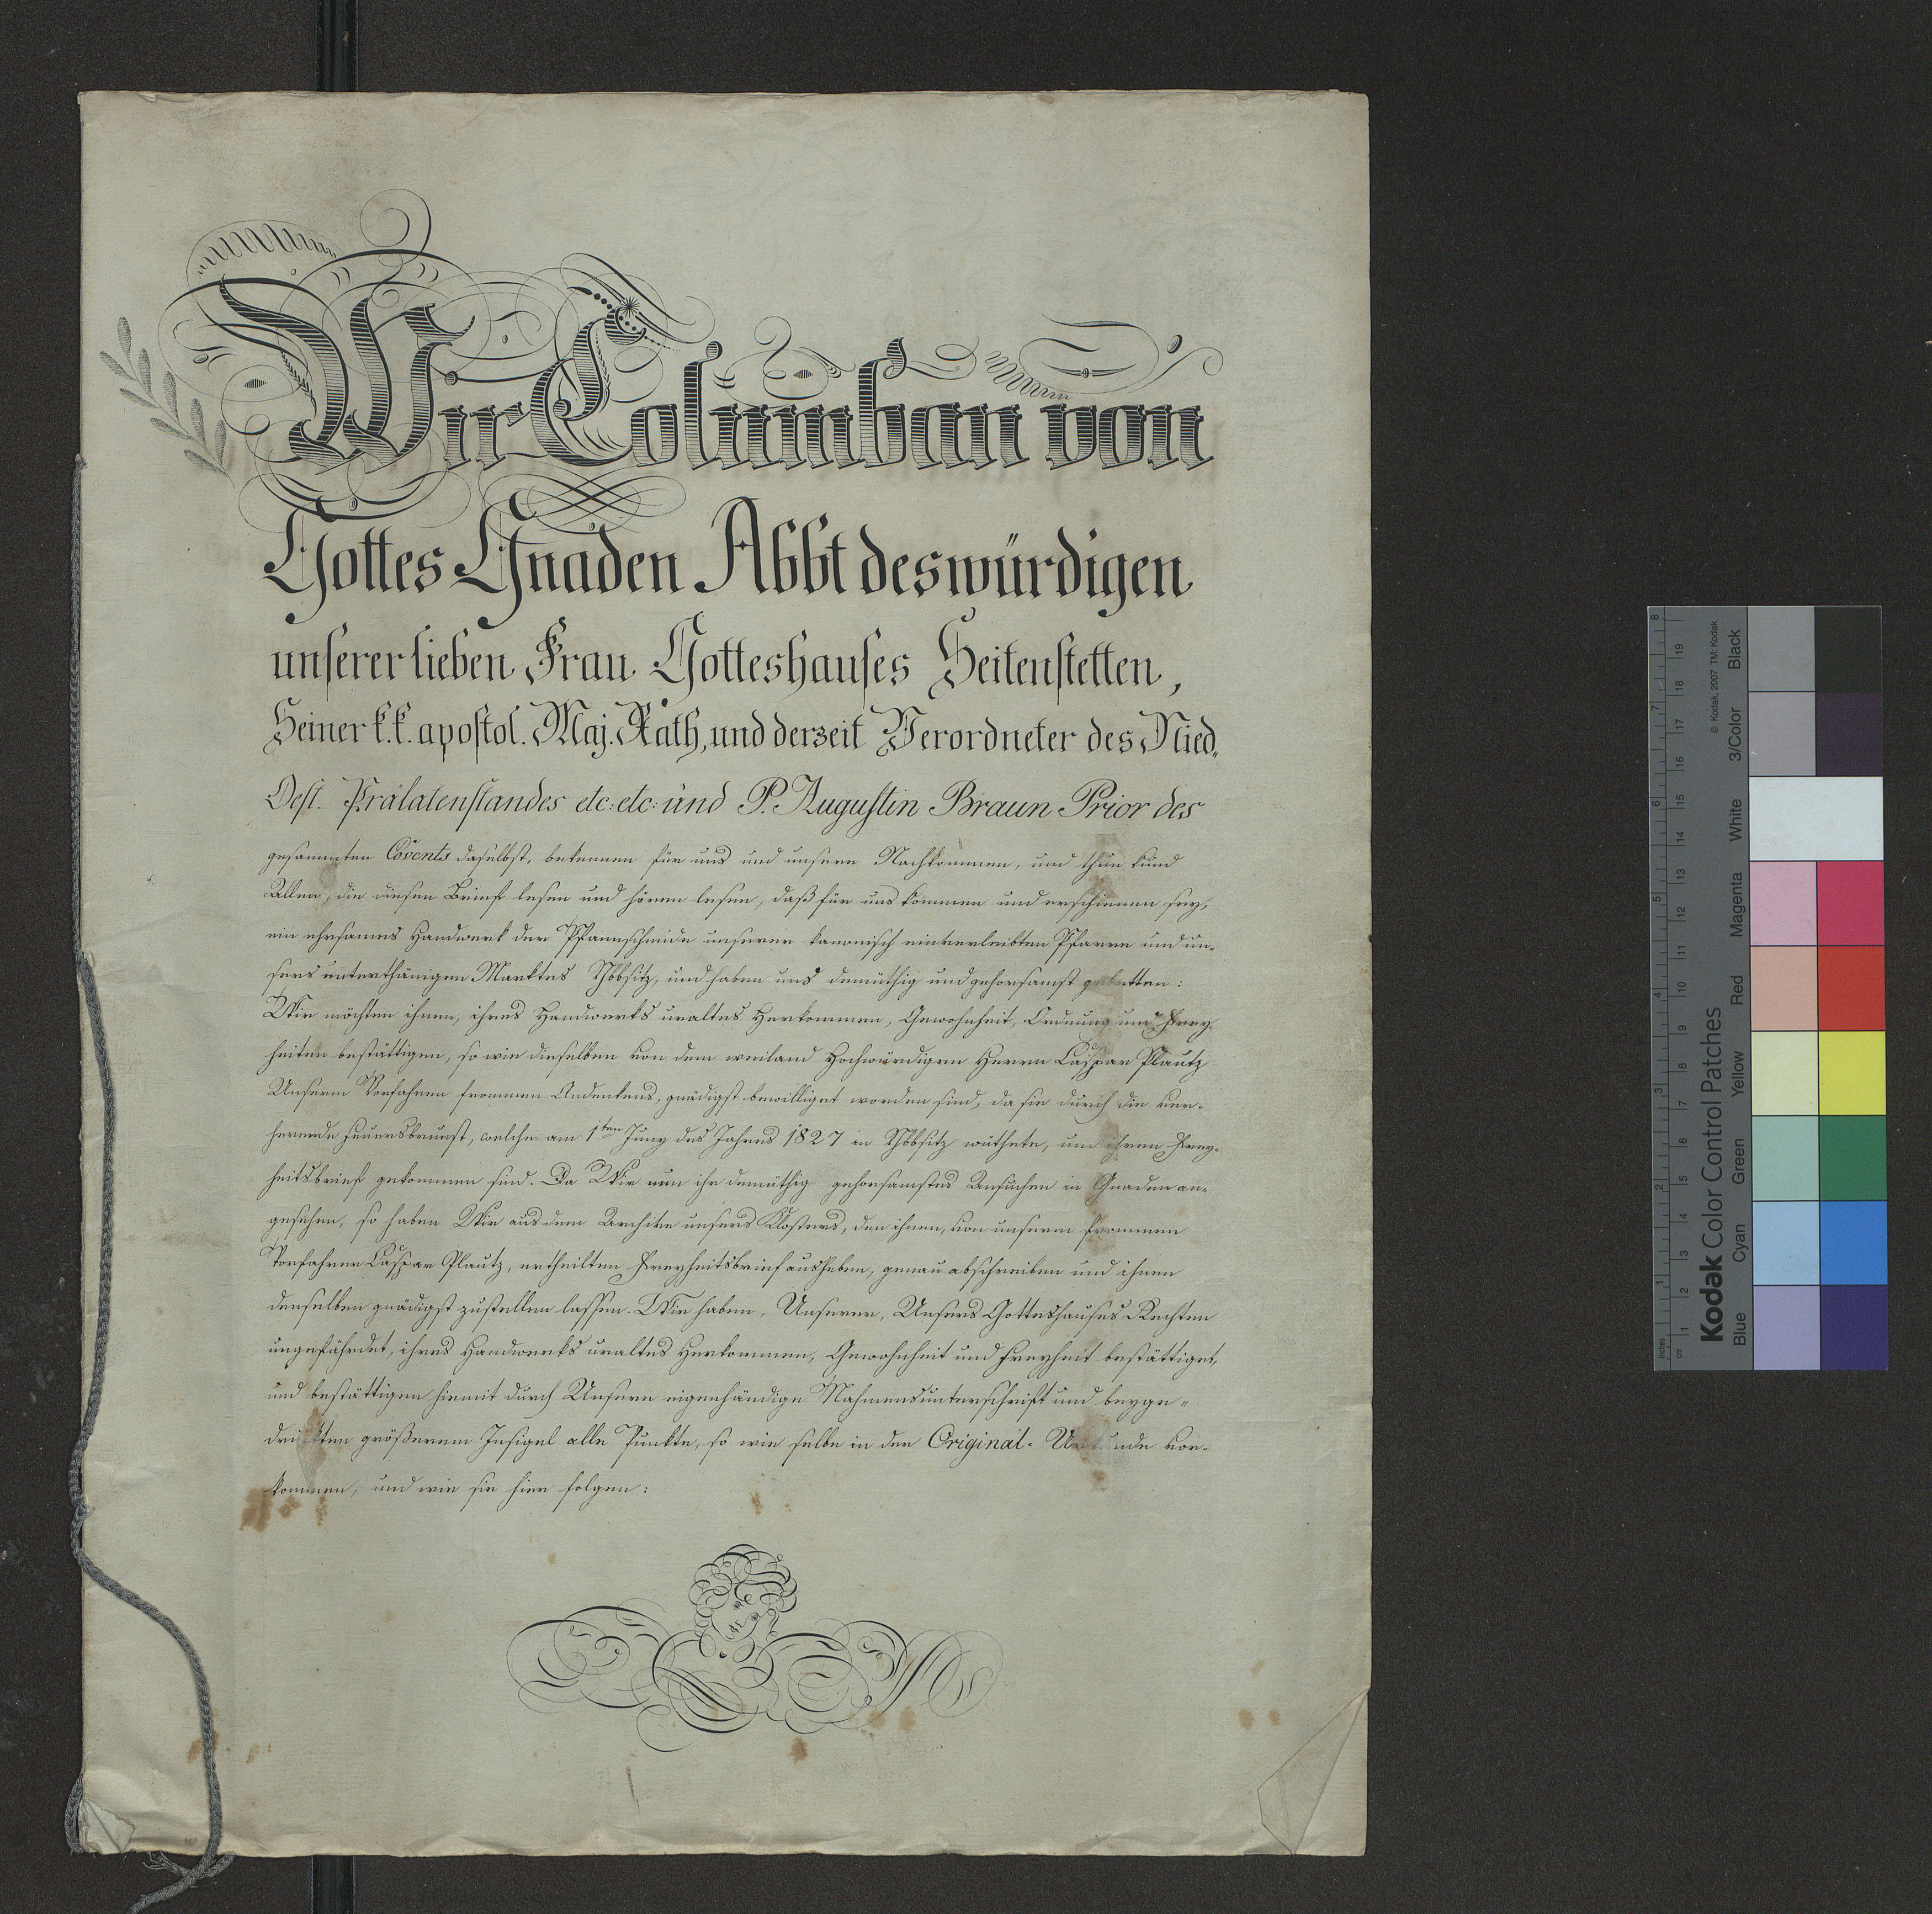 Wir Columban von
Gottes Gnaden Abbt des würdigen
unserer lieben Frau Gotteshauses Seitenstetten,
Seiner k. k. apostol. Maj. Rath, und derzeit Verordneter des Nied„
Oest. Prälatenstandes etc: etc: und P. Augustin Braun Prior des
gesammten Cōvents daselbst, bekennen für uns und unsere Nachkommen, und thun kund
Allen, die diesen Brief lesen und hören lesen, daß für uns kommen und erschienen sey,
ein ehrsames Handwerk der Pfannschmide unserer kanonisch einverleibten Pfarre und un-
sers unterthänigen Marktes Ybbsitz, und haben uns demüthig und gehorsamst gebetten:
Wir möchten ihnen, ihres Handwerks uraltes Herkommen, Gewohnheit, Ordnung und Frey-
heiten bestättigen, so wie dieselben von dem weiland Hochwürdigen Herrn Caspar Plautz
Unserm Vorfahren frommen Andenkens, gnädigst bewilliget worden sind, da sie durch die ver-
herende Feuersbrunst, welche am 1ten Juny des Jahres 1827 in Ybbsitz wüthete, um ihren Frey-
heitsbrief gekommen sind. Da Wir nun ihr demüthig gehorsamstes Ansuchen in Gnaden an-
gesehen, so haben Wir aus dem Archive unsers Klosters, den ihnen, von unserm frommen
Vorfahrer Caspar Plautz, ertheilten Freyheitsbrief ausheben, genau abschreiben und ihnen
denselben gnädigst zustellen lassen. Wir haben, Unserer, Unsers Gotteshauses Rechten
ungefährdet, ihres Handwerks uraltes Herkommen, Gewohnheit und Freyheit bestättiget,
und bestättigen hiemit durch Unsere eigenhändige Nahmensunterschrift und beyge-
drückten größerem Insigel alle Punkte, so wie selbe in der Original-Urkunde vor-
kommen, und wie sie hier folgen:
Kodak Color Control Patches
© Kodak, 2007 TM: Kodak
Blue Cyan Green Yellow Red Magenta White 3/Color Black
inches 1 2 3 4 5 6 7 8
cm 1 2 3 4 5 6 7 8 9 10 11 12 13 14 15 16 17 18 19